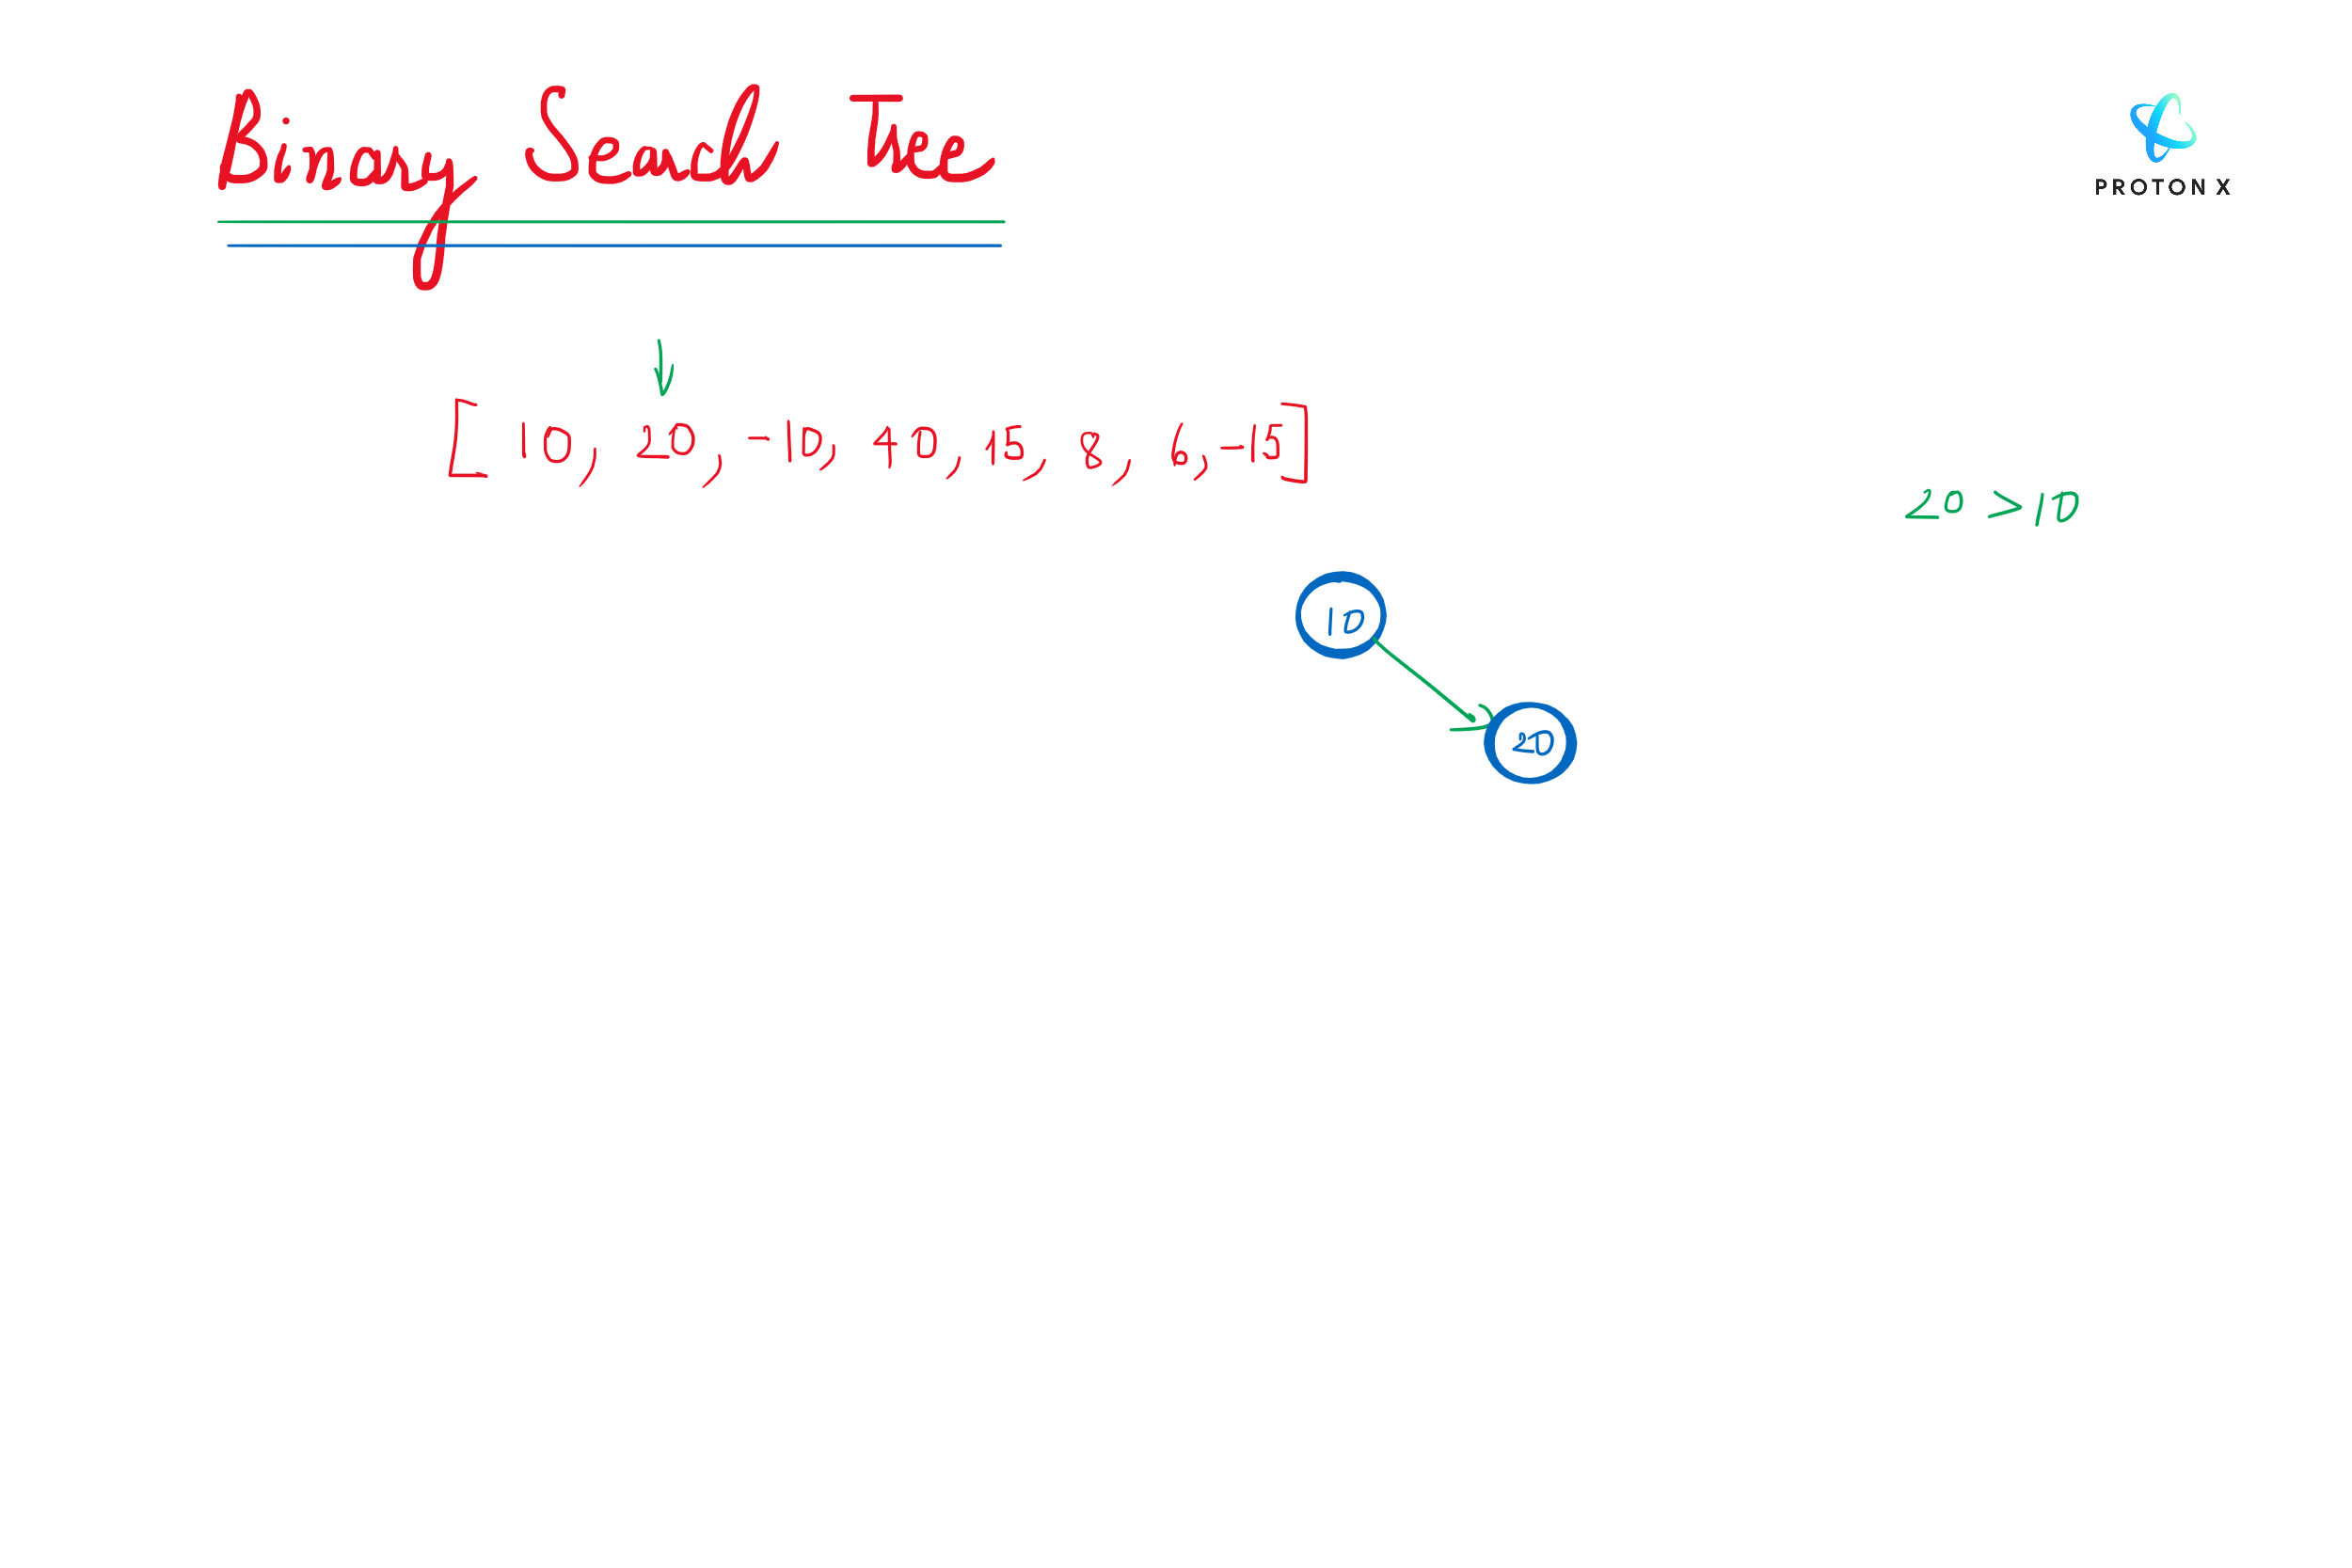 Binary Search Tree
PROTON X
[ 10, 20, -10, 40, 15, 8, 6, -15 ]
20 > 10
10
20